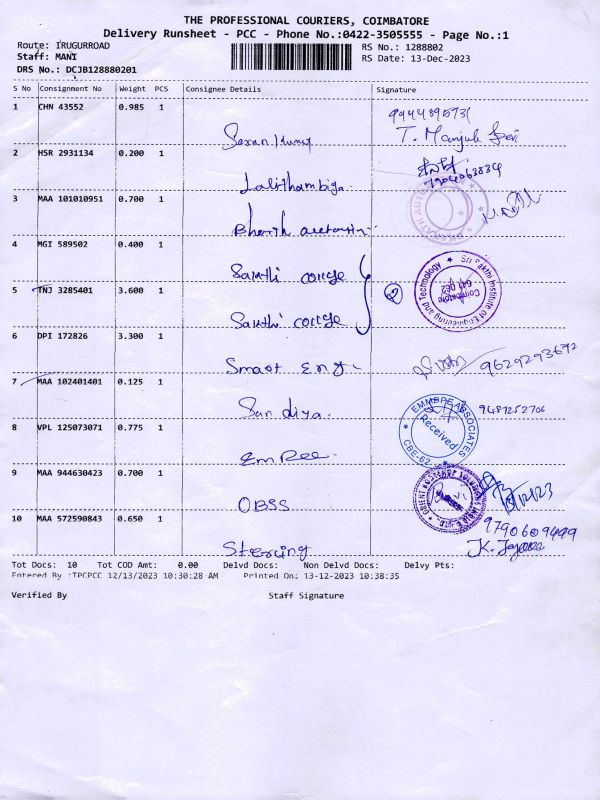 THE PROFESSIONAL COURIERS, COIMBATORE
Delivery Runsheet - PCC - Phone No.:0422-3505555 - Page No.:1
Route: IRUGURROAD
RS No.: 1288802
Staff: MANI
RS Date: 13-Dec-2023
DRS No.: DCJB128880201
S No Consignment No Weight PCS Consignee Details Signature
1 CHN 43552 0.985 1
T. Manjula Devi
2 HSR 2931134 0.200 1
7904063834
Lalithambiga
3 MAA 101010951 0.700 1
Bharth
4 MGI 589502 0.400 1
Sakthi college
Sri Sakthi Institute of Engineering and Technology
Coimbatore
641 062
5 TNJ 3285401 3.600 1
2
Sakthi college
6 DPI 172826 3.300 1
Smart Eng.
9629293672
7 MAA 102401401 0.125 1
Sandiya.
9487252706
8 VPL 125073071 0.775 1
EMMBPEE ASSOCIATES
Received
CBE-62
EmPee
9 MAA 944630423 0.700 1
13/12/23
OBSS
10 MAA 572590843 0.650 1
9790609499
Sterling
Tot Docs: 10 Tot COD Amt: 0.00 Delvd Docs: Non Delvd Docs: Delvy Pts:
Entered By :TPCPCC 12/13/2023 10:30:28 AM Printed On: 13-12-2023 10:38:35
Verified By Staff Signature